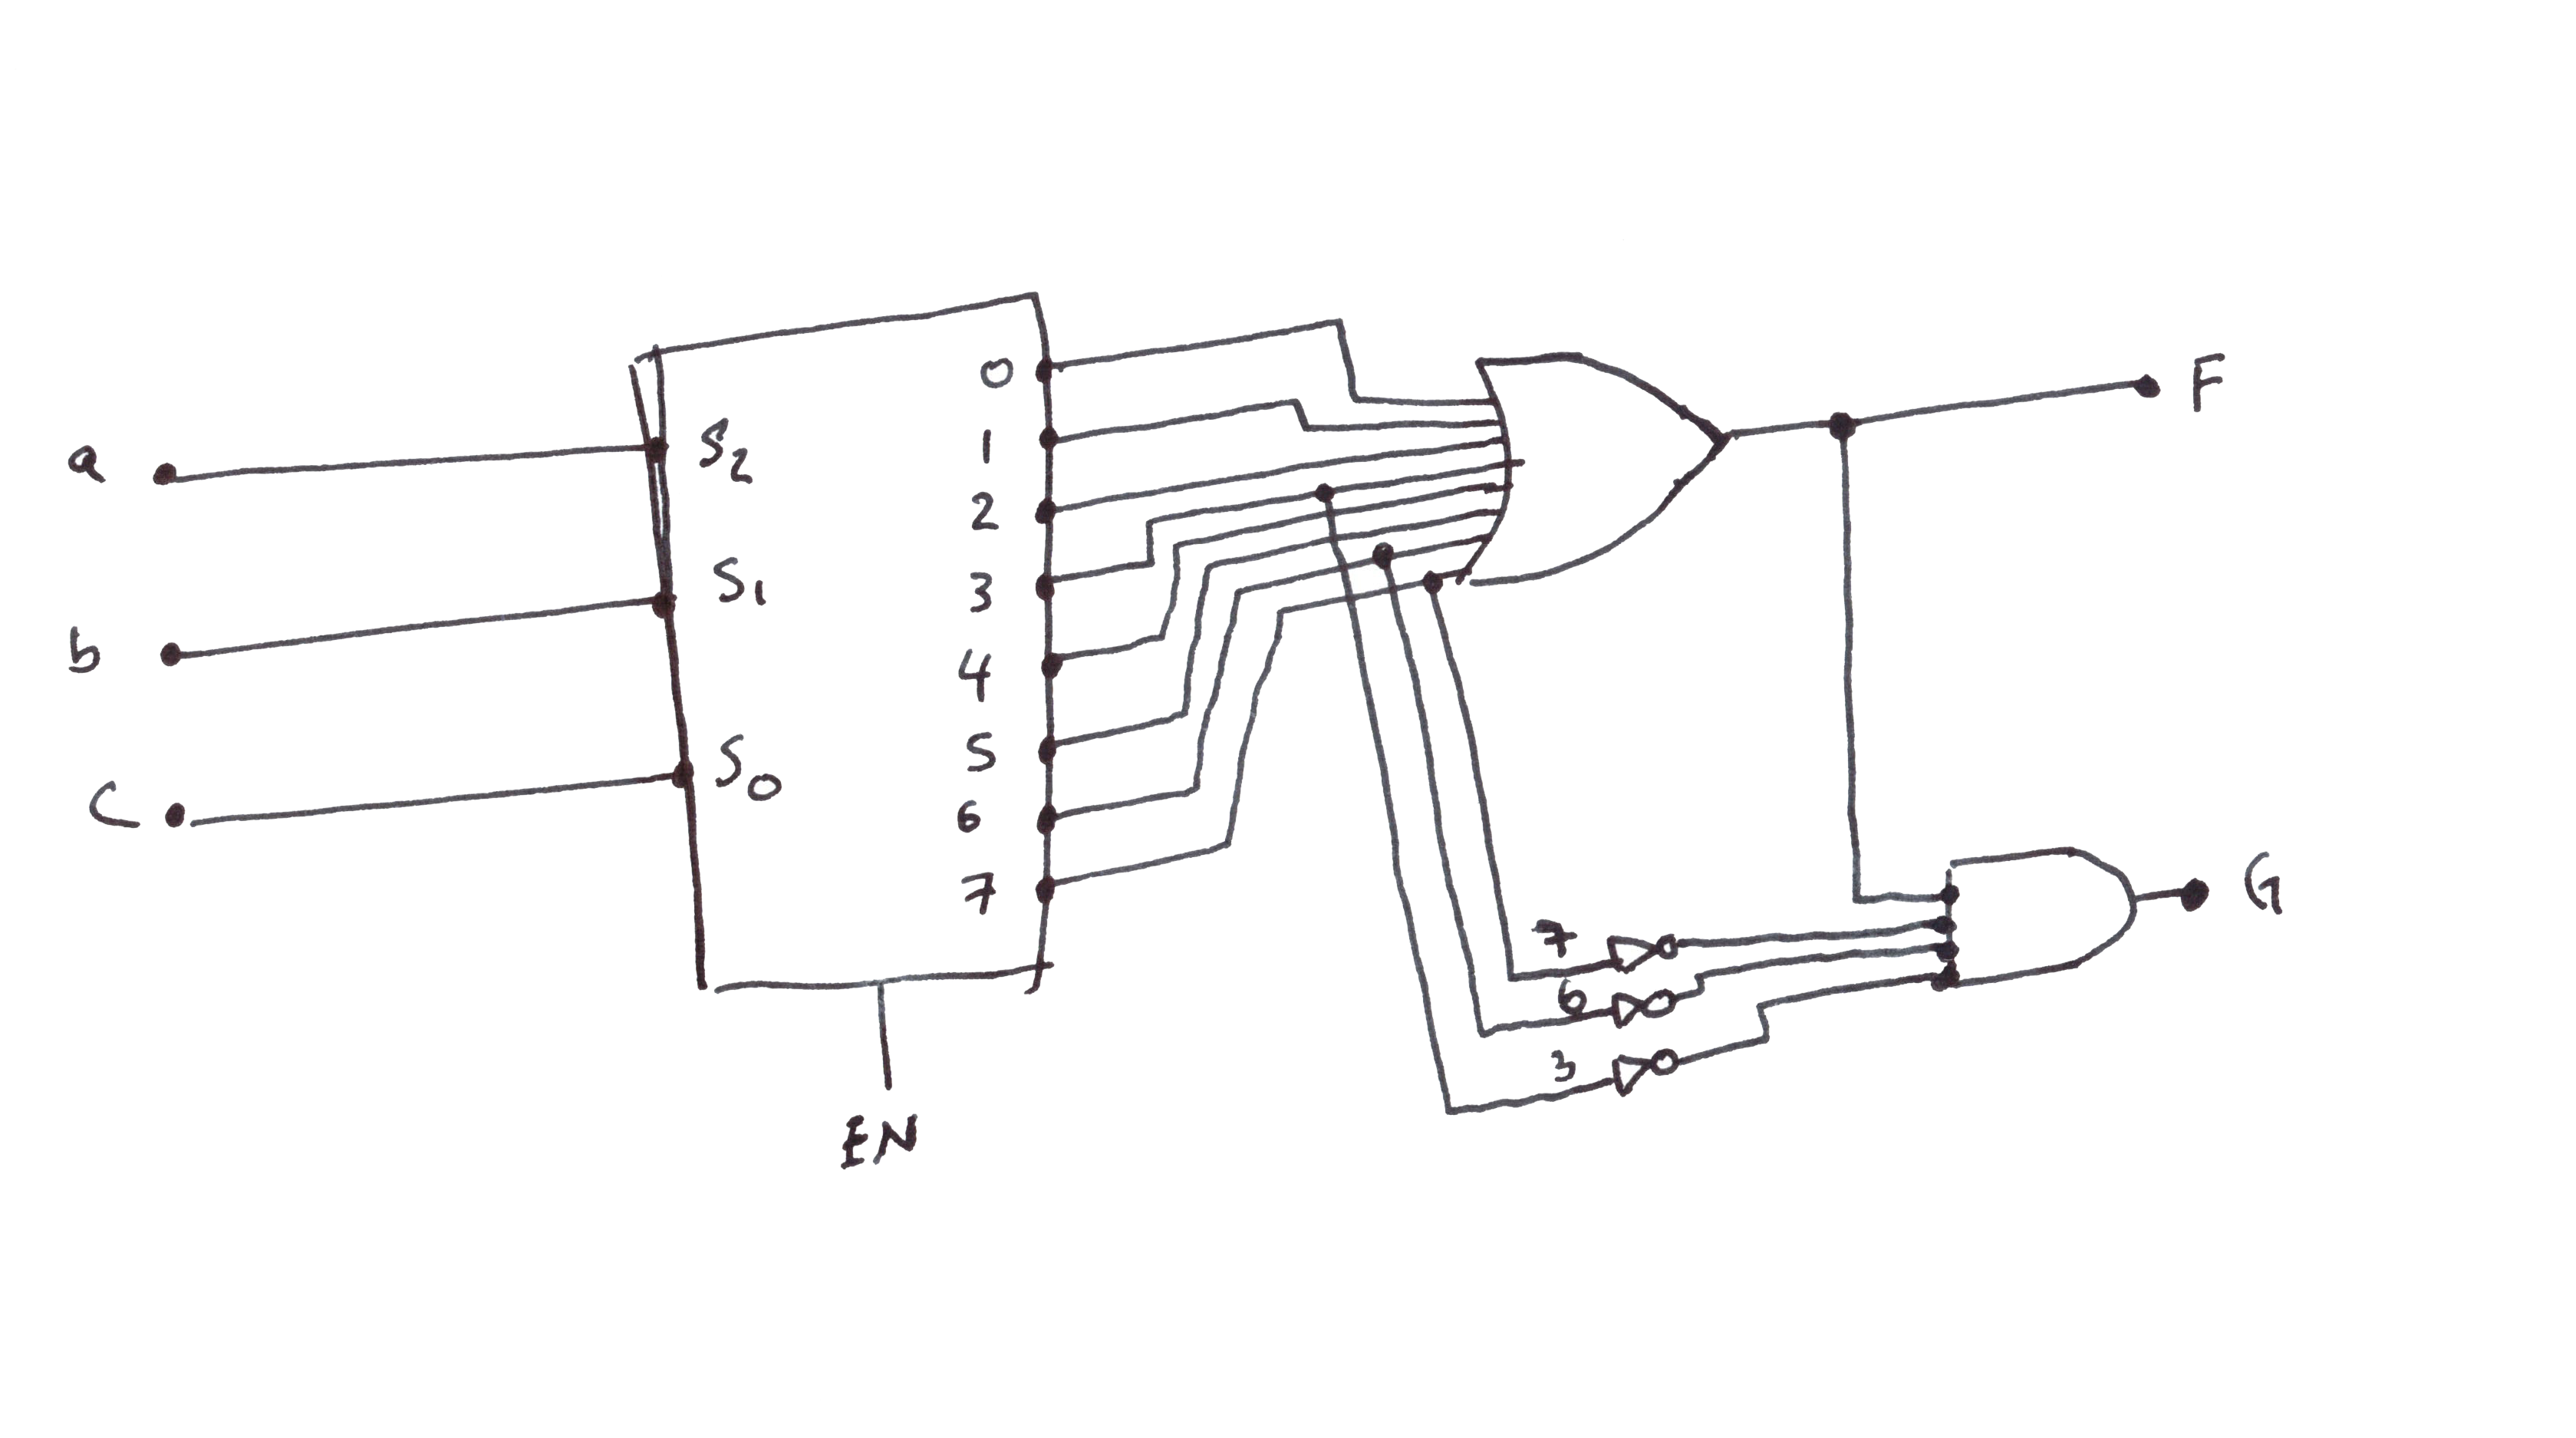 a
b
C
S2
S1
S0
0
1
2
3
4
5
6
7
EN
F
7
6
3
G